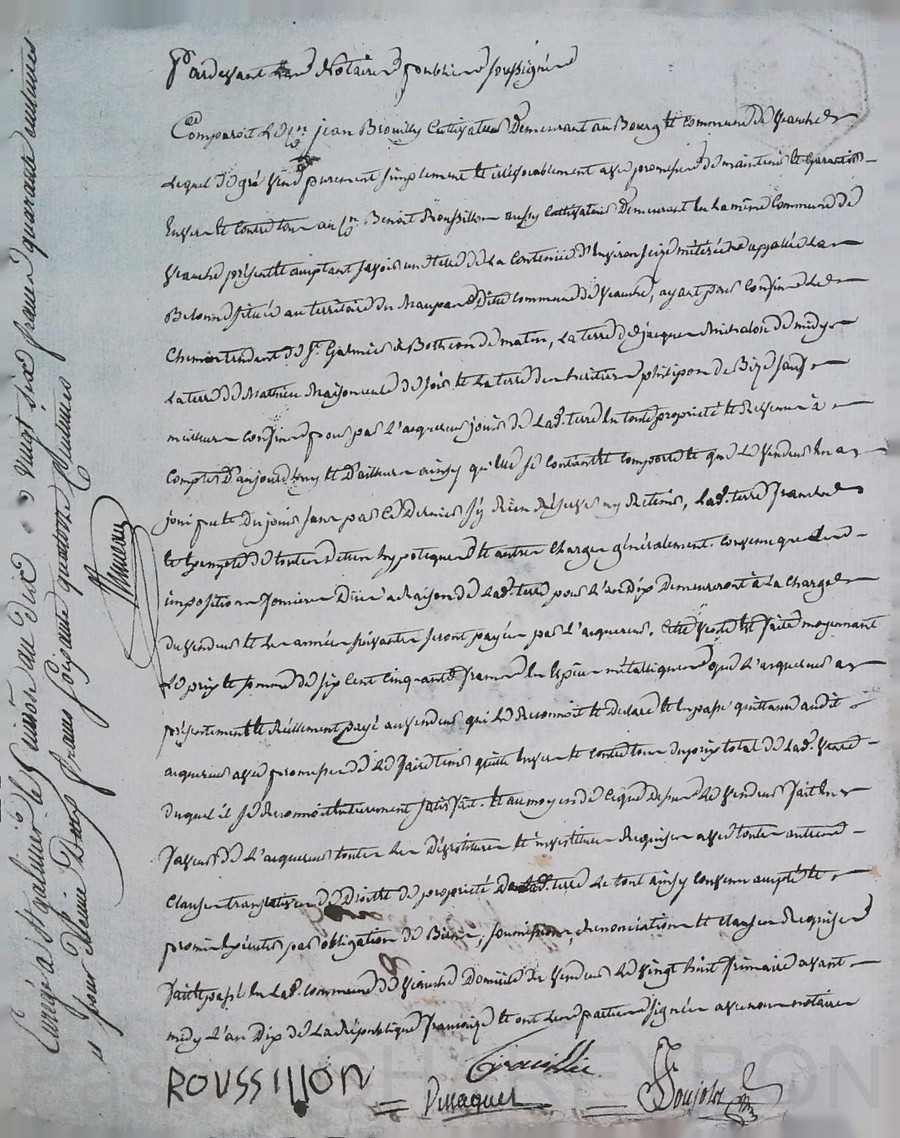 Pardevant Notaires publics soussignés
Comparoit le Cn jean Brouilly Cultivateur Demeurant au Bourg et commune de Veauche
Lequel de gré vend purement simplement et irrévocablement avec promesse de maintenir et Garantir
Envers et contre tous au Cn Benoit Roussillon aussy Cultivateur Demeurant en La même Commune de
Veauche présent et acceptant savoir une terre de La Contenue d'environ seize méterées appellée La
située au territoire du dite commune de Veauche, ayant pour Confins Le
Chemin tendant de St Galmier à Botheon de matin, La terre de jacques Michalon de midy
La terre de Mathieu Maisonneuve de soir et La terre des heritiers philipon de Bize sauf
meilleurs confins pour par L'acquereur jouir de Lad. terre en toute propriété et Revenus à
Compter D'aujourd'huy et D'ailleurs ainsy qu'elle se contient et comporte et que Le Vendeur en a
joui pu et du jouir sans par ce Dernier s'y Rien Réserver ny Retenir, Lad. terre franche
et exempte de toutes dettes hypoteques et autres Charges généralement. Convenu que Les
impositions foncières Dües a Raison de Lad. terre pour L'an Dix Demeureront à La Charge
du Vendeur et Les années suivantes seront payées par L'acquereur. Cette Vente est faite moyennant
Le prix et somme de six Cent Cinquante francs en Espèces métalliques que L'acquereur a
présentement et Réellement payé au vendeur qui Le Reconnoit et Declare et en passe quittance audit
acquereur avec promesse de Le faire tenir quitte Envers et Contre tous du prix total de Lad. Terre
duquel il se Reconnoit entierement satisfait. et au moyen de ce que Dessus Le vendeur fait En
faveur de L'acquereur toutes Les Dévestitures et investitures Requises avec toutes autres
Clauses translatives de Droits de propriété de Lad. terre Le tout ainsy convenu accepté et
promis Exécuter par obligation de Biens, soumissions, Renonciations et clauses Requises
fait et passé en Lad. commune de Veauche Domicile du Vendeur Le Vingt huit frimaire avant
midy L'an Dix de La République françoise et ont Les parties signées avec nous notaires
ROUSSILLON Brouillie
Poujolz
Enregé à St galmier le 5 nivose an dix vingt six francs quarante centimes
pour Deux francs soixante quatorze Centimes